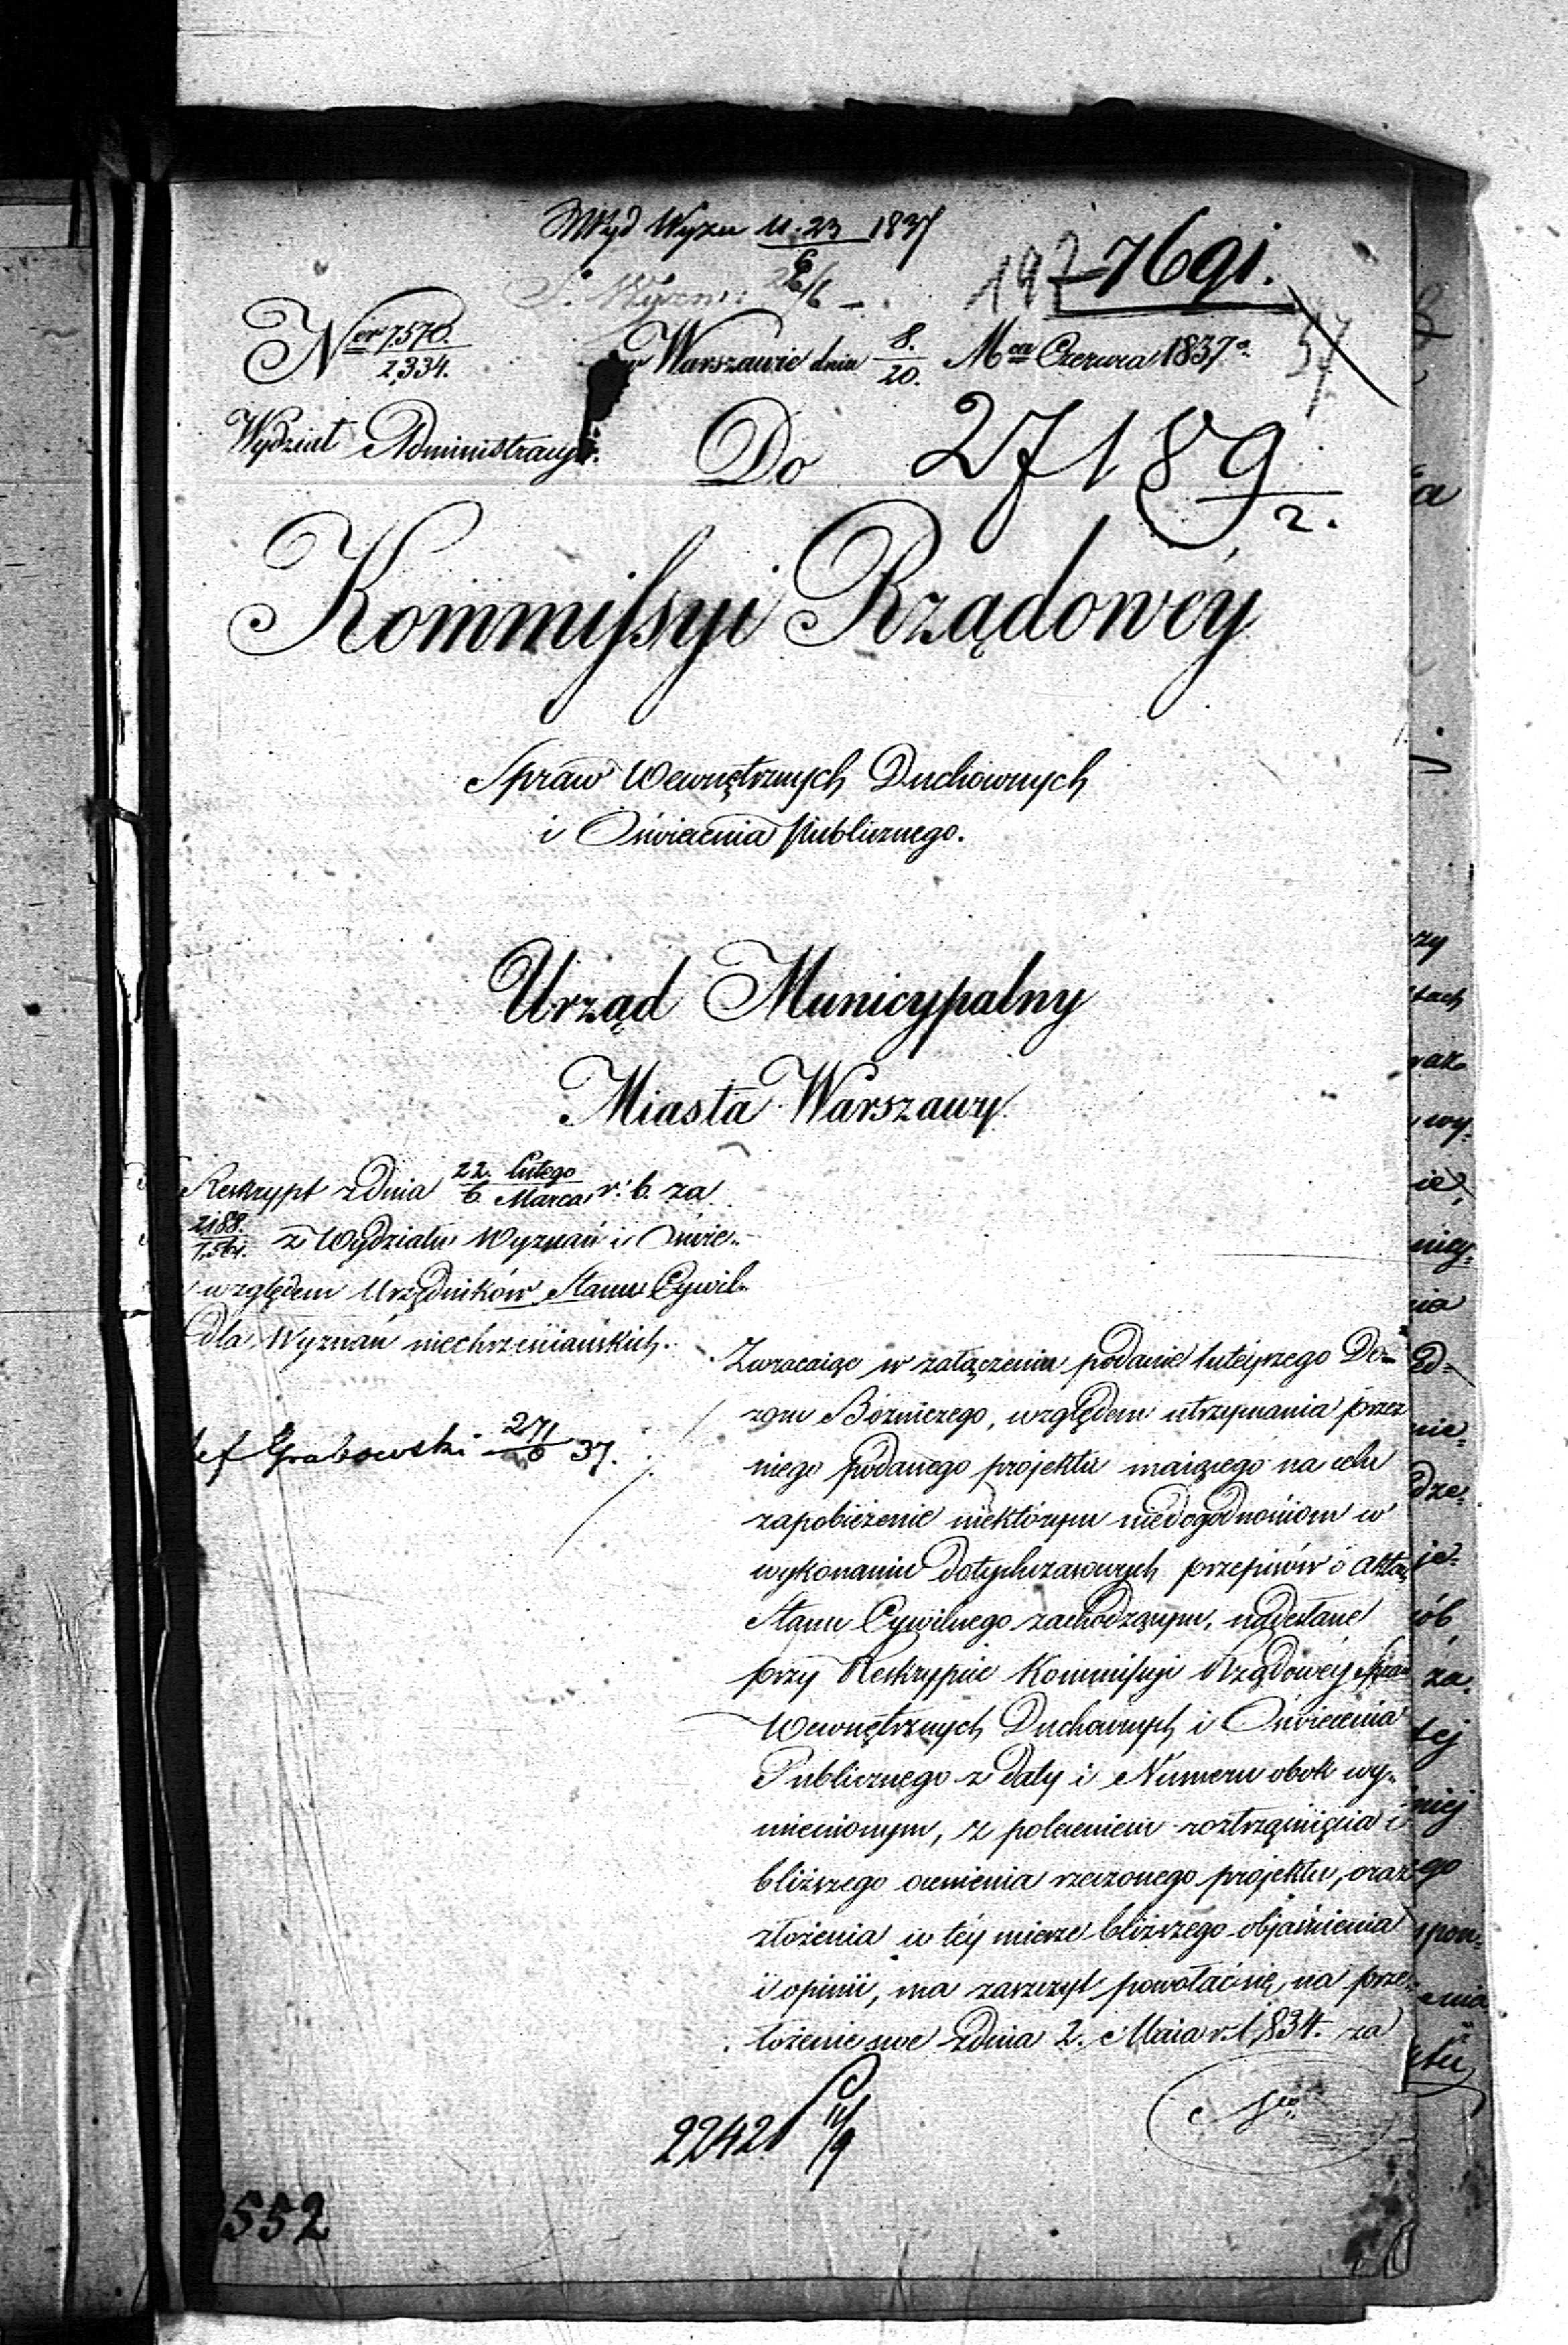 Wyd Wyzn 11.23 1837
6
S. Wyzn: 26/6
197 7691.
Ner 7570.
2,334.
w Warszawie dnia 8./20. Mca Czerwca 1837o
Wydział Administracyi.
Do 27189
2.
Kommissyi Rządowéy
Spraw Wewnętrznych Duchownych
i Oświecenia Publicznego.
Urząd Municypalny
Miasta Warszawy
Reskrypt z dnia 22. Lutego/6. Marca r: b. za
2188. z Wydziału Wyznań i Oświe-
względem Urzędników Stanu Cywil-
dla Wyznań niechrześciańskich.
Grabowski 271 37.
Zwracaiąc w załączeniu podanie tuteyszego Do-
zoru Bożniczego, względem utrzymania przez
niego podanego projektu maiącego na celu
zapobieżenie niektórym niedogodnościom w
wykonaniu dotychczasowych przepisów o aktach
Stanu Cywilnego zachodzącym, nadesłane
przy Reskrypcie Kommissyi Rządowéy Spraw
Wewnętrznych Duchownych i Oświecenia
Publicznego z daty i Numeru obok wy-
mienionym, z poleceniem roztrząśnięcia i
bliższego ocenienia rzeczonego projektu, oraz
złożenia w téy mierze bliższego objaśnienia
i opinii, ma zaszczyt powołać się na prze-
łożenie swe z dnia 2. Maia r. 1834. za
Nro
22421
552